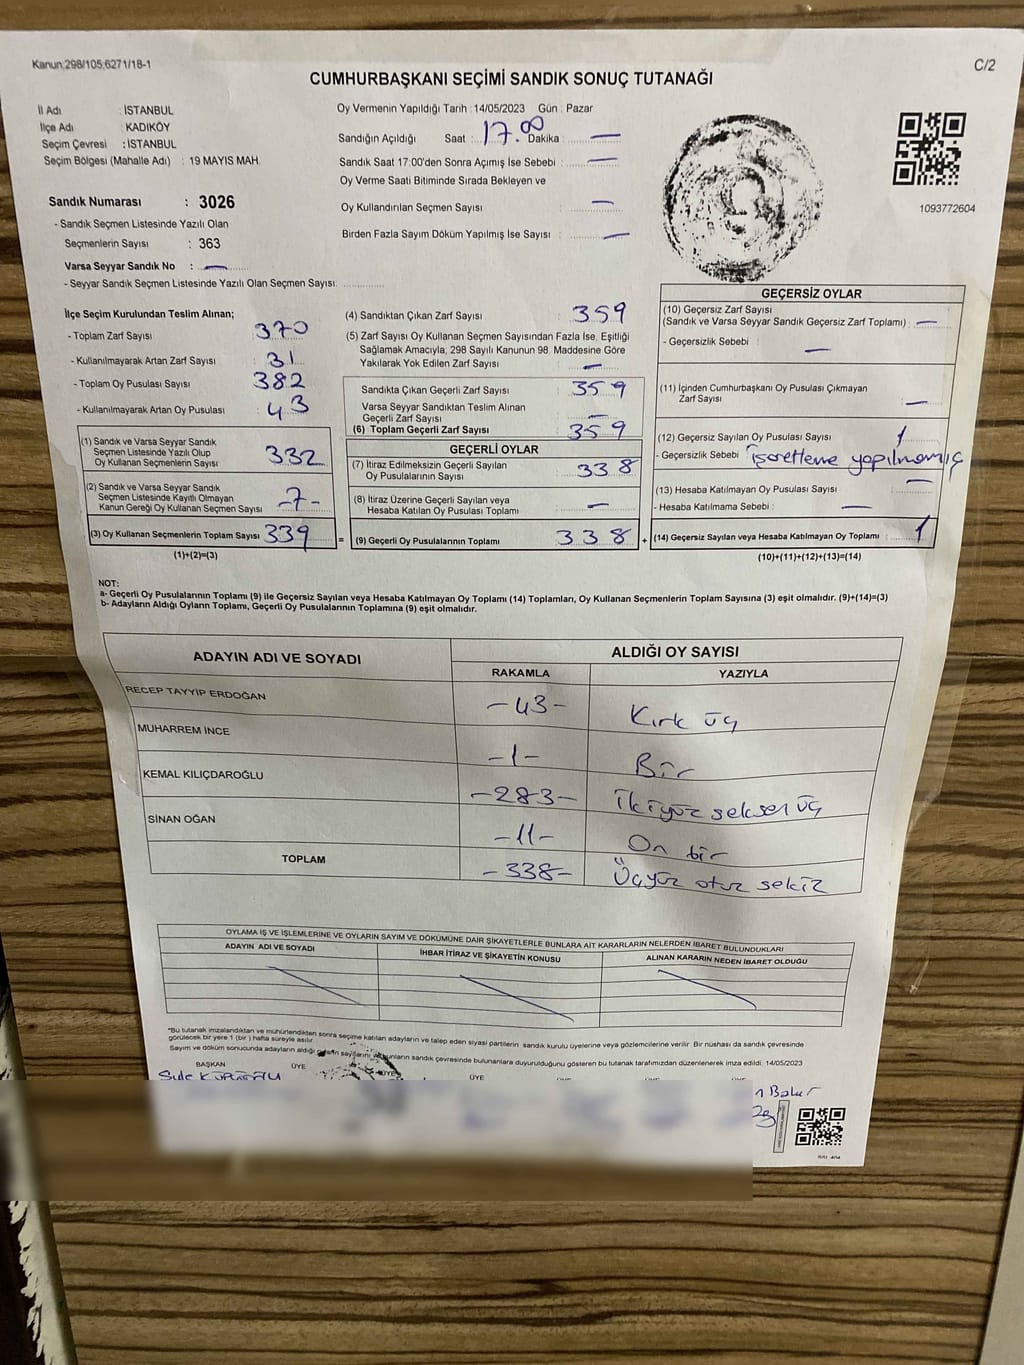 Kanun:298/105;6271/18-1
C/2
CUMHURBAŞKANI SEÇİMİ SANDIK SONUÇ TUTANAĞI
İl Adı : İSTANBUL
İlçe Adı : KADIKÖY
Seçim Çevresi : İSTANBUL
Seçim Bölgesi (Mahalle Adı) : 19 MAYIS MAH.
Oy Vermenin Yapıldığı Tarih : 14/05/2023 Gün : Pazar
Sandığın Açıldığı Saat : 17.00 Dakika : —
Sandık Saat 17:00'den Sonra Açımış İse Sebebi : —
Oy Verme Saati Bitiminde Sırada Bekleyen ve
Oy Kullandırılan Seçmen Sayısı : —
Birden Fazla Sayım Döküm Yapılmış İse Sayısı : —
1093772604
Sandık Numarası : 3026
- Sandık Seçmen Listesinde Yazılı Olan
Seçmenlerin Sayısı : 363
Varsa Seyyar Sandık No : —
- Seyyar Sandık Seçmen Listesinde Yazılı Olan Seçmen Sayısı:
İlçe Seçim Kurulundan Teslim Alınan;
- Toplam Zarf Sayısı : 370
- Kullanılmayarak Artan Zarf Sayısı : 31
- Toplam Oy Pusulası Sayısı : 382
- Kullanılmayarak Artan Oy Pusulası : 43
(1) Sandık ve Varsa Seyyar Sandık
Seçmen Listesinde Yazılı Olup
Oy Kullanan Seçmenlerin Sayısı 332
(2) Sandık ve Varsa Seyyar Sandık
Seçmen Listesinde Kayıtlı Olmayan
Kanun Gereği Oy Kullanan Seçmen Sayısı -7-
(3) Oy Kullanan Seçmenlerin Toplam Sayısı 339
(1)+(2)=(3)
(4) Sandıktan Çıkan Zarf Sayısı : 359
(5) Zarf Sayısı Oy Kullanan Seçmen Sayısından Fazla İse, Eşitliği
Sağlamak Amacıyla; 298 Sayılı Kanunun 98. Maddesine Göre
Yakılarak Yok Edilen Zarf Sayısı : —
Sandıkta Çıkan Geçerli Zarf Sayısı : 359
Varsa Seyyar Sandıktan Teslim Alınan
Geçerli Zarf Sayısı : —
(6) Toplam Geçerli Zarf Sayısı : 359
GEÇERLİ OYLAR
(7) İtiraz Edilmeksizin Geçerli Sayılan
Oy Pusulalarının Sayısı : 338
(8) İtiraz Üzerine Geçerli Sayılan veya
Hesaba Katılan Oy Pusulası Toplamı : —
= (9) Geçerli Oy Pusulalarının Toplamı : 338
GEÇERSİZ OYLAR
(10) Geçersiz Zarf Sayısı
(Sandık ve Varsa Seyyar Sandık Geçersiz Zarf Toplamı) : —
- Geçersizlik Sebebi : —
(11) İçinden Cumhurbaşkanı Oy Pusulası Çıkmayan
Zarf Sayısı : —
(12) Geçersiz Sayılan Oy Pusulası Sayısı : 1
- Geçersizlik Sebebi : işaretleme yapılmamış
(13) Hesaba Katılmayan Oy Pusulası Sayısı : —
- Hesaba Katılmama Sebebi : —
+ (14) Geçersiz Sayılan veya Hesaba Katılmayan Oy Toplamı : 1
(10)+(11)+(12)+(13)=(14)
NOT:
a- Geçerli Oy Pusulalarının Toplamı (9) ile Geçersiz Sayılan veya Hesaba Katılmayan Oy Toplamı (14) Toplamları, Oy Kullanan Seçmenlerin Toplam Sayısına (3) eşit olmalıdır. (9)+(14)=(3)
b- Adayların Aldığı Oyların Toplamı, Geçerli Oy Pusulalarının Toplamına (9) eşit olmalıdır.
ADAYIN ADI VE SOYADI
ALDIĞI OY SAYISI
RAKAMLA YAZIYLA
RECEP TAYYİP ERDOĞAN -43- Kırk üç
MUHARREM İNCE -1- Bir
KEMAL KILIÇDAROĞLU -283- İkiyüz seksen üç
SİNAN OĞAN -11- On bir
TOPLAM -338- Üçyüz otuz sekiz
OYLAMA İŞ VE İŞLEMLERİNE VE OYLARIN SAYIM VE DÖKÜMÜNE DAİR ŞİKAYETLERLE BUNLARA AİT KARARLARIN NELERDEN İBARET BULUNDUKLARI
ADAYIN ADI VE SOYADI İHBAR İTİRAZ VE ŞİKAYETİN KONUSU ALINAN KARARIN NEDEN İBARET OLDUĞU
*Bu tutanak imzalandıktan ve mühürlendikten sonra seçime katılan adayların ve talep eden siyasi partilerin sandık kurulu üyelerine veya gözlemcilerine verilir. Bir nüshası da sandık çevresinde
görülecek bir yere 1 (bir) hafta süreyle asılır.
Sayım ve döküm sonucunda adayların aldığı sayıları bunların sandık çevresinde bulunanlara duyurulduğunu gösteren bu tutanak tarafımızdan düzenlenerek imza edildi. 14/05/2023
BAŞKAN ÜYE ÜYE ÜYE